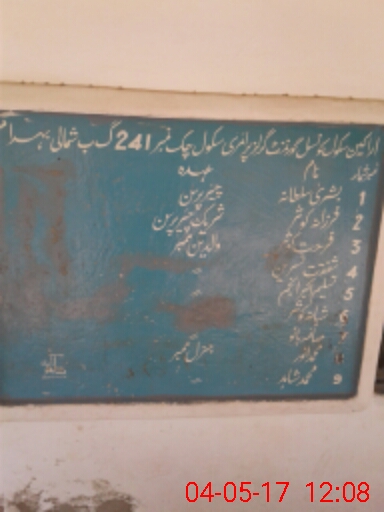 اراکین سکول کونسل گورنمنٹ گرلز پرائمری سکول چک نمبر 241 گ ب شمالی
نمبر شمار نام عہدہ
1 بشریٰ سلطانہ چیئرپرسن
2 فرزانہ کوثر شریک چیئرپرسن
3 فرحت والدین ممبر
4 شگفت نسرین "
5 تسلیم اختر انجم "
6 شبانہ کوثر
7 صائمہ بانو
8 محمد انور جنرل ممبر
9 محمد شاہد "
04-05-17 12:08